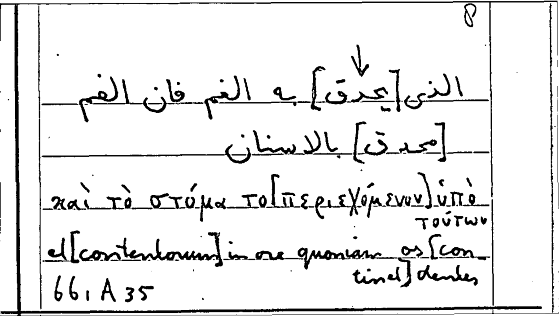 8
الذى [يحدق] به الفم فان الفم
[محدق] بالاسنان
καὶ τὸ στόμα τὸ [περιεχόμενον] ὑπὸ
τούτων
et [contentorum] in ore quoniam os [con-
tinet] dentes
66, A 35